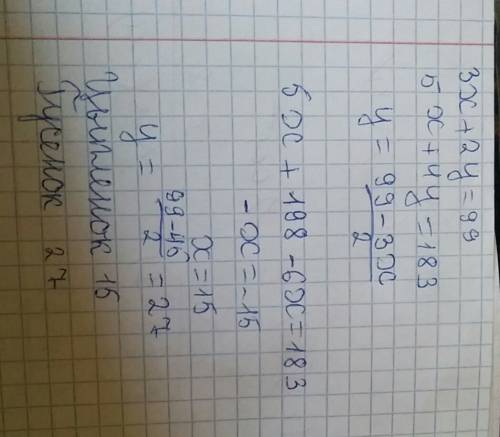 3x + 2y = 99
5x + 4y = 183
y = 99 - 3x / 2
5x + 198 - 6x = 183
-x = -15
x = 15
y = 99-45 / 2 = 27
Цыпленок 15
Гусенок 27